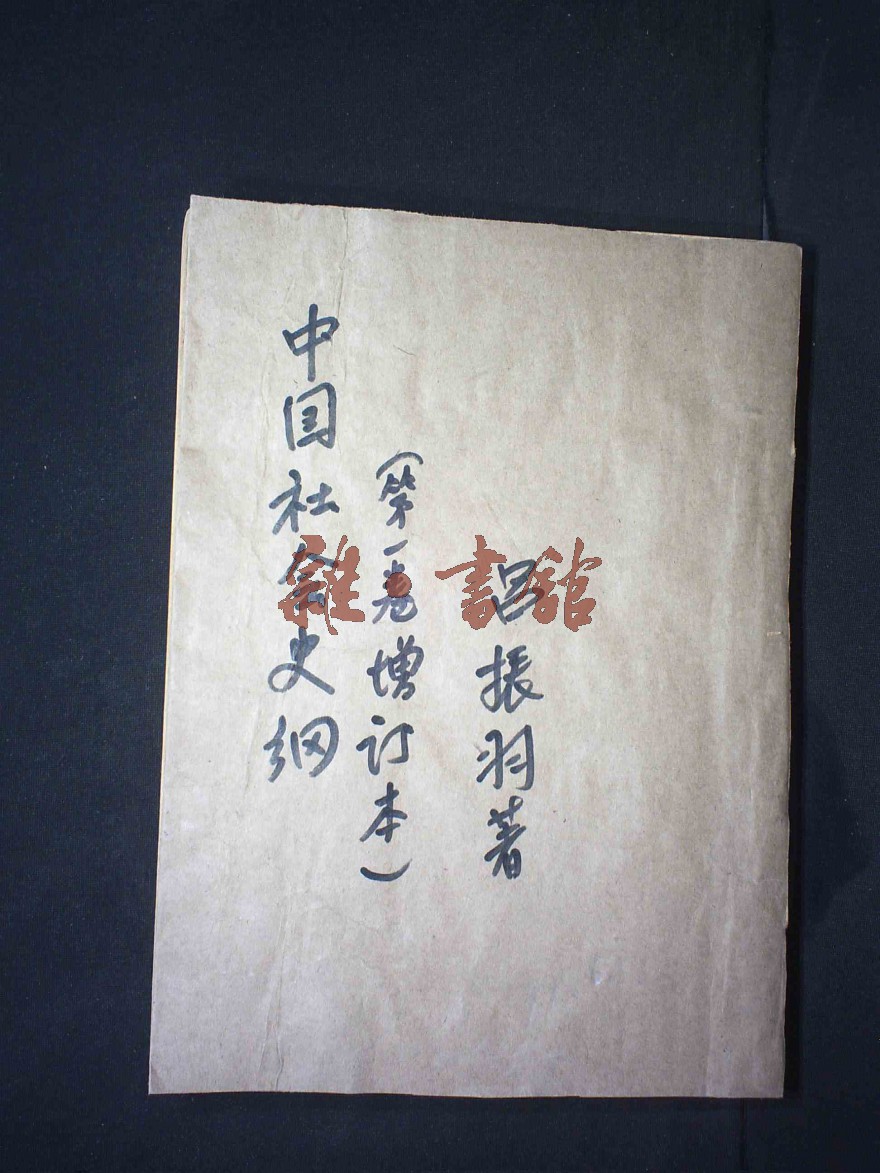 中国社会史纲
（第一卷增订本）
吕振羽著
雜·書館